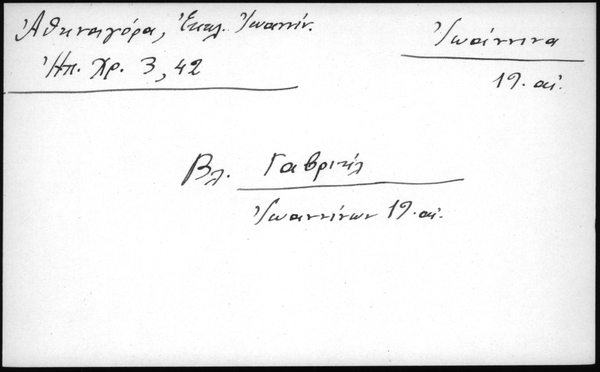 Ἀθηναγόρα, Ἐκκλ. Ἰωαννίν.
Ἠπ. Χρ. 3, 42
Ἰωάννινα
19. αἰ.
Βλ. Γαβριήλ
Ἰωαννίνων 19. αἰ.